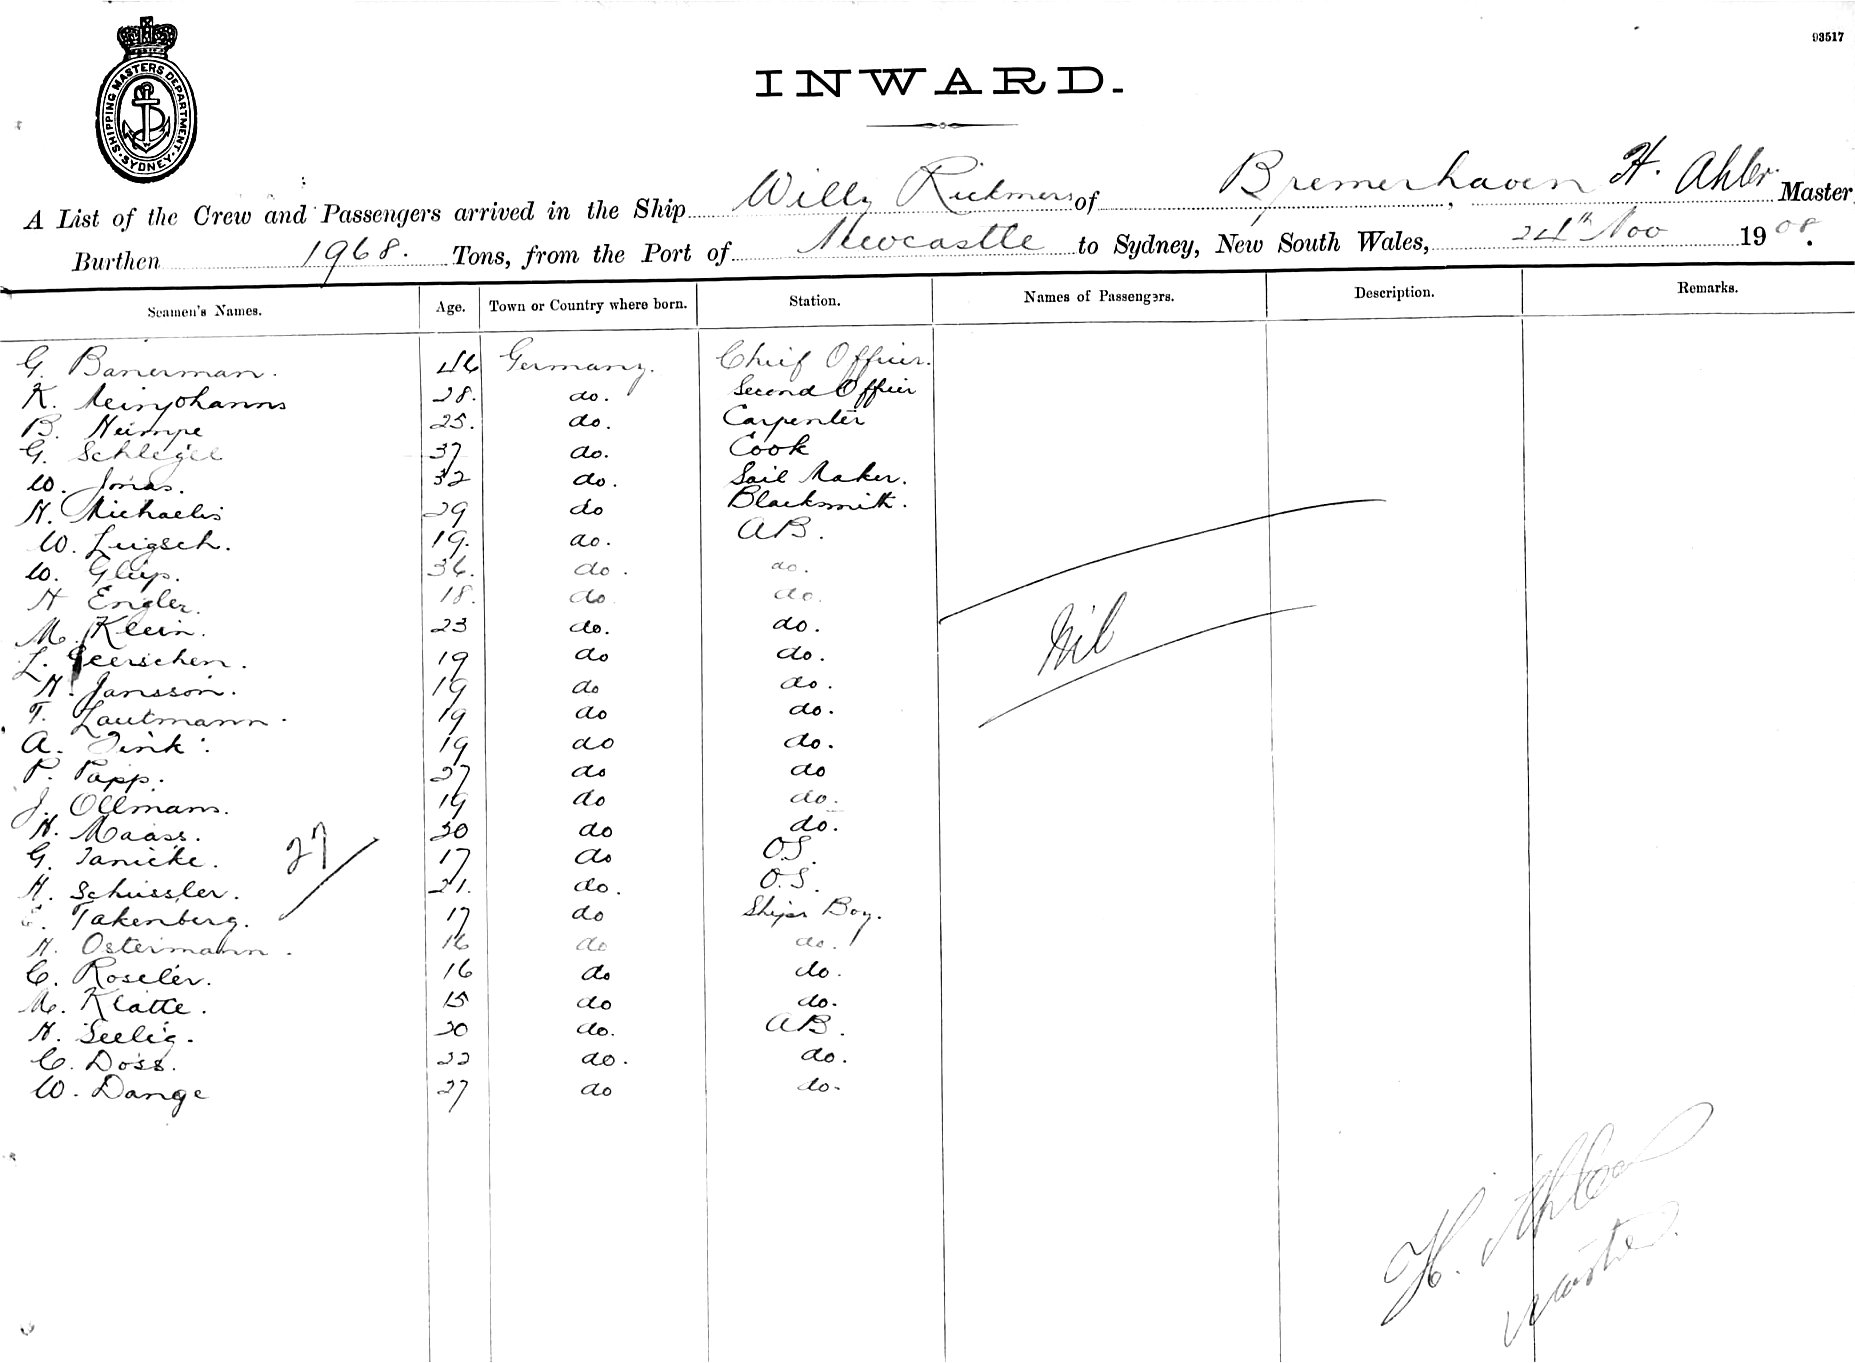 93517
SHIPPING MASTERS DEPARTMENT
SYDNEY
INWARD.
A List of the Crew and Passengers arrived in the Ship Willy Rickmers of Bremerhaven, H. Ahlers Master
Burthen 1968. Tons, from the Port of Newcastle to Sydney, New South Wales, 24th Nov 1908.
Seamen's Names. Age. Town or Country where born. Station. Names of Passengers. Description. Remarks.
G. Banerman. 46 Germany. Chief Officer.
K. Meinjohanns 28. do. Second Officer
B. Heimpe 25. do. Carpenter
G. Schlegel 37 do. Cook
W. Jonas. 32 do. Sail Maker.
H. Michaelis 29 do Blacksmith.
W. Luigsch. 19. do. AB.
W. 36. do. do.
H Engler. 18. do do.
M. Klein. 23 do. do.
L. Geerschen. 19 do do.
H. Jansson. 19 do do.
T. Lautmann. 19 do do.
A. Fink. 19 do do.
P. Papp. 27 do do
J. Ollmans. 19 do do.
H. Maass. 30 do do.
G. Janicke. 17 do O.S.
H. Schussler. 21. do. O.S.
Takenberg. 17 do Ships Boy.
H. Ostermann. 16 do do.
C. Roseler. 16 do do.
M. Klatte. 15 do do.
H. Seelig. 20 do. AB.
C. Doss. 22 do. do.
W. Dange 27 do do.
27
Nil
H. Ahlers
Master